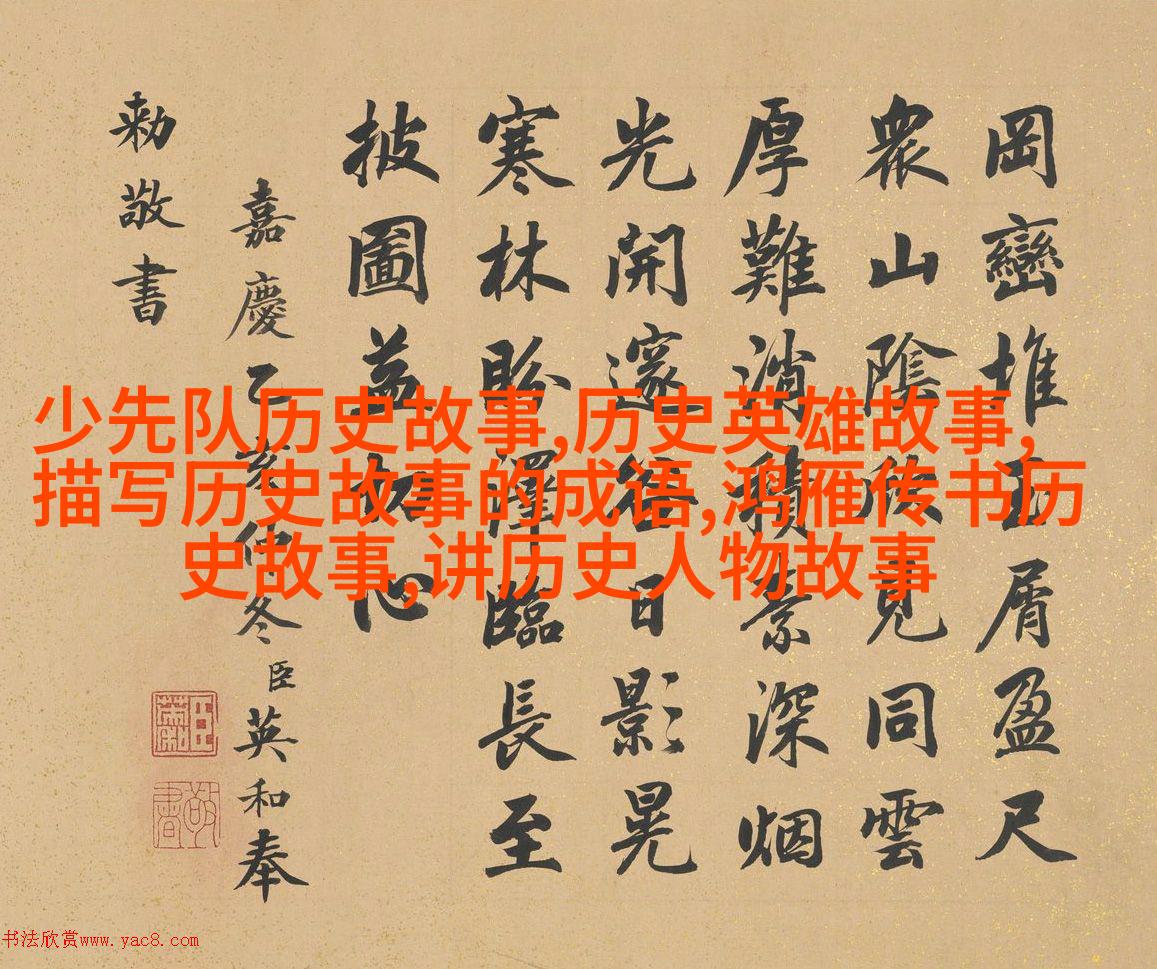 少先队历史故事,历史英雄故事,
描写历史故事的成语,鸿雁传书历
史故事,讲历史人物故事
岡巒堆玉屑盈尺
衆山陰候見同雲
厚難消積素深烟
光開邃日影晃
寒林盼澤臨長至
披圖益切心
嘉慶乙亥仲冬臣英和奉
勅敬書
敬書
书法欣赏www.yac8.com